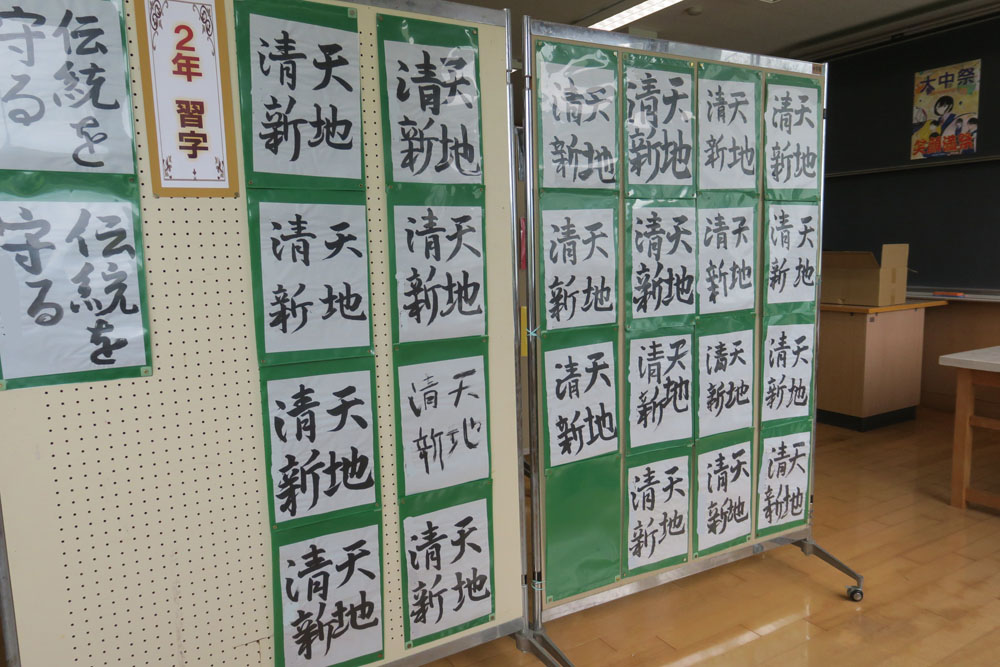 伝統を
守る
伝統を
守る
2年 習字
天地
清新
天地
清新
天地
清新
天地
清新
天地
清新
天地
清新
天地
清新
天地
清新
天地
清新
天地
清新
天地
清新
天地
清新
天地
清新
天地
清新
天地
清新
天地
清新
天地
清新
天地
清新
天地
清新
天地
清新
天地
清新
天地
清新
天地
清新